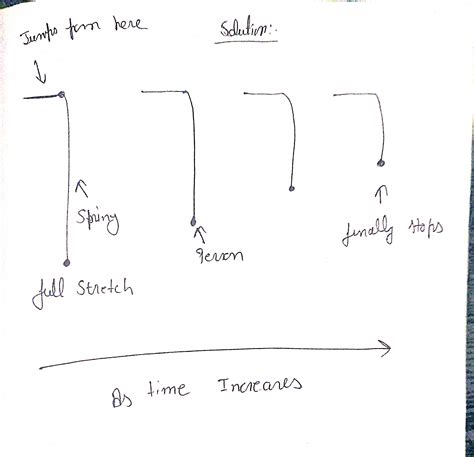 Jumps from here
Solution:.
Spring
Person
finally stops
full Stretch
As time Increases